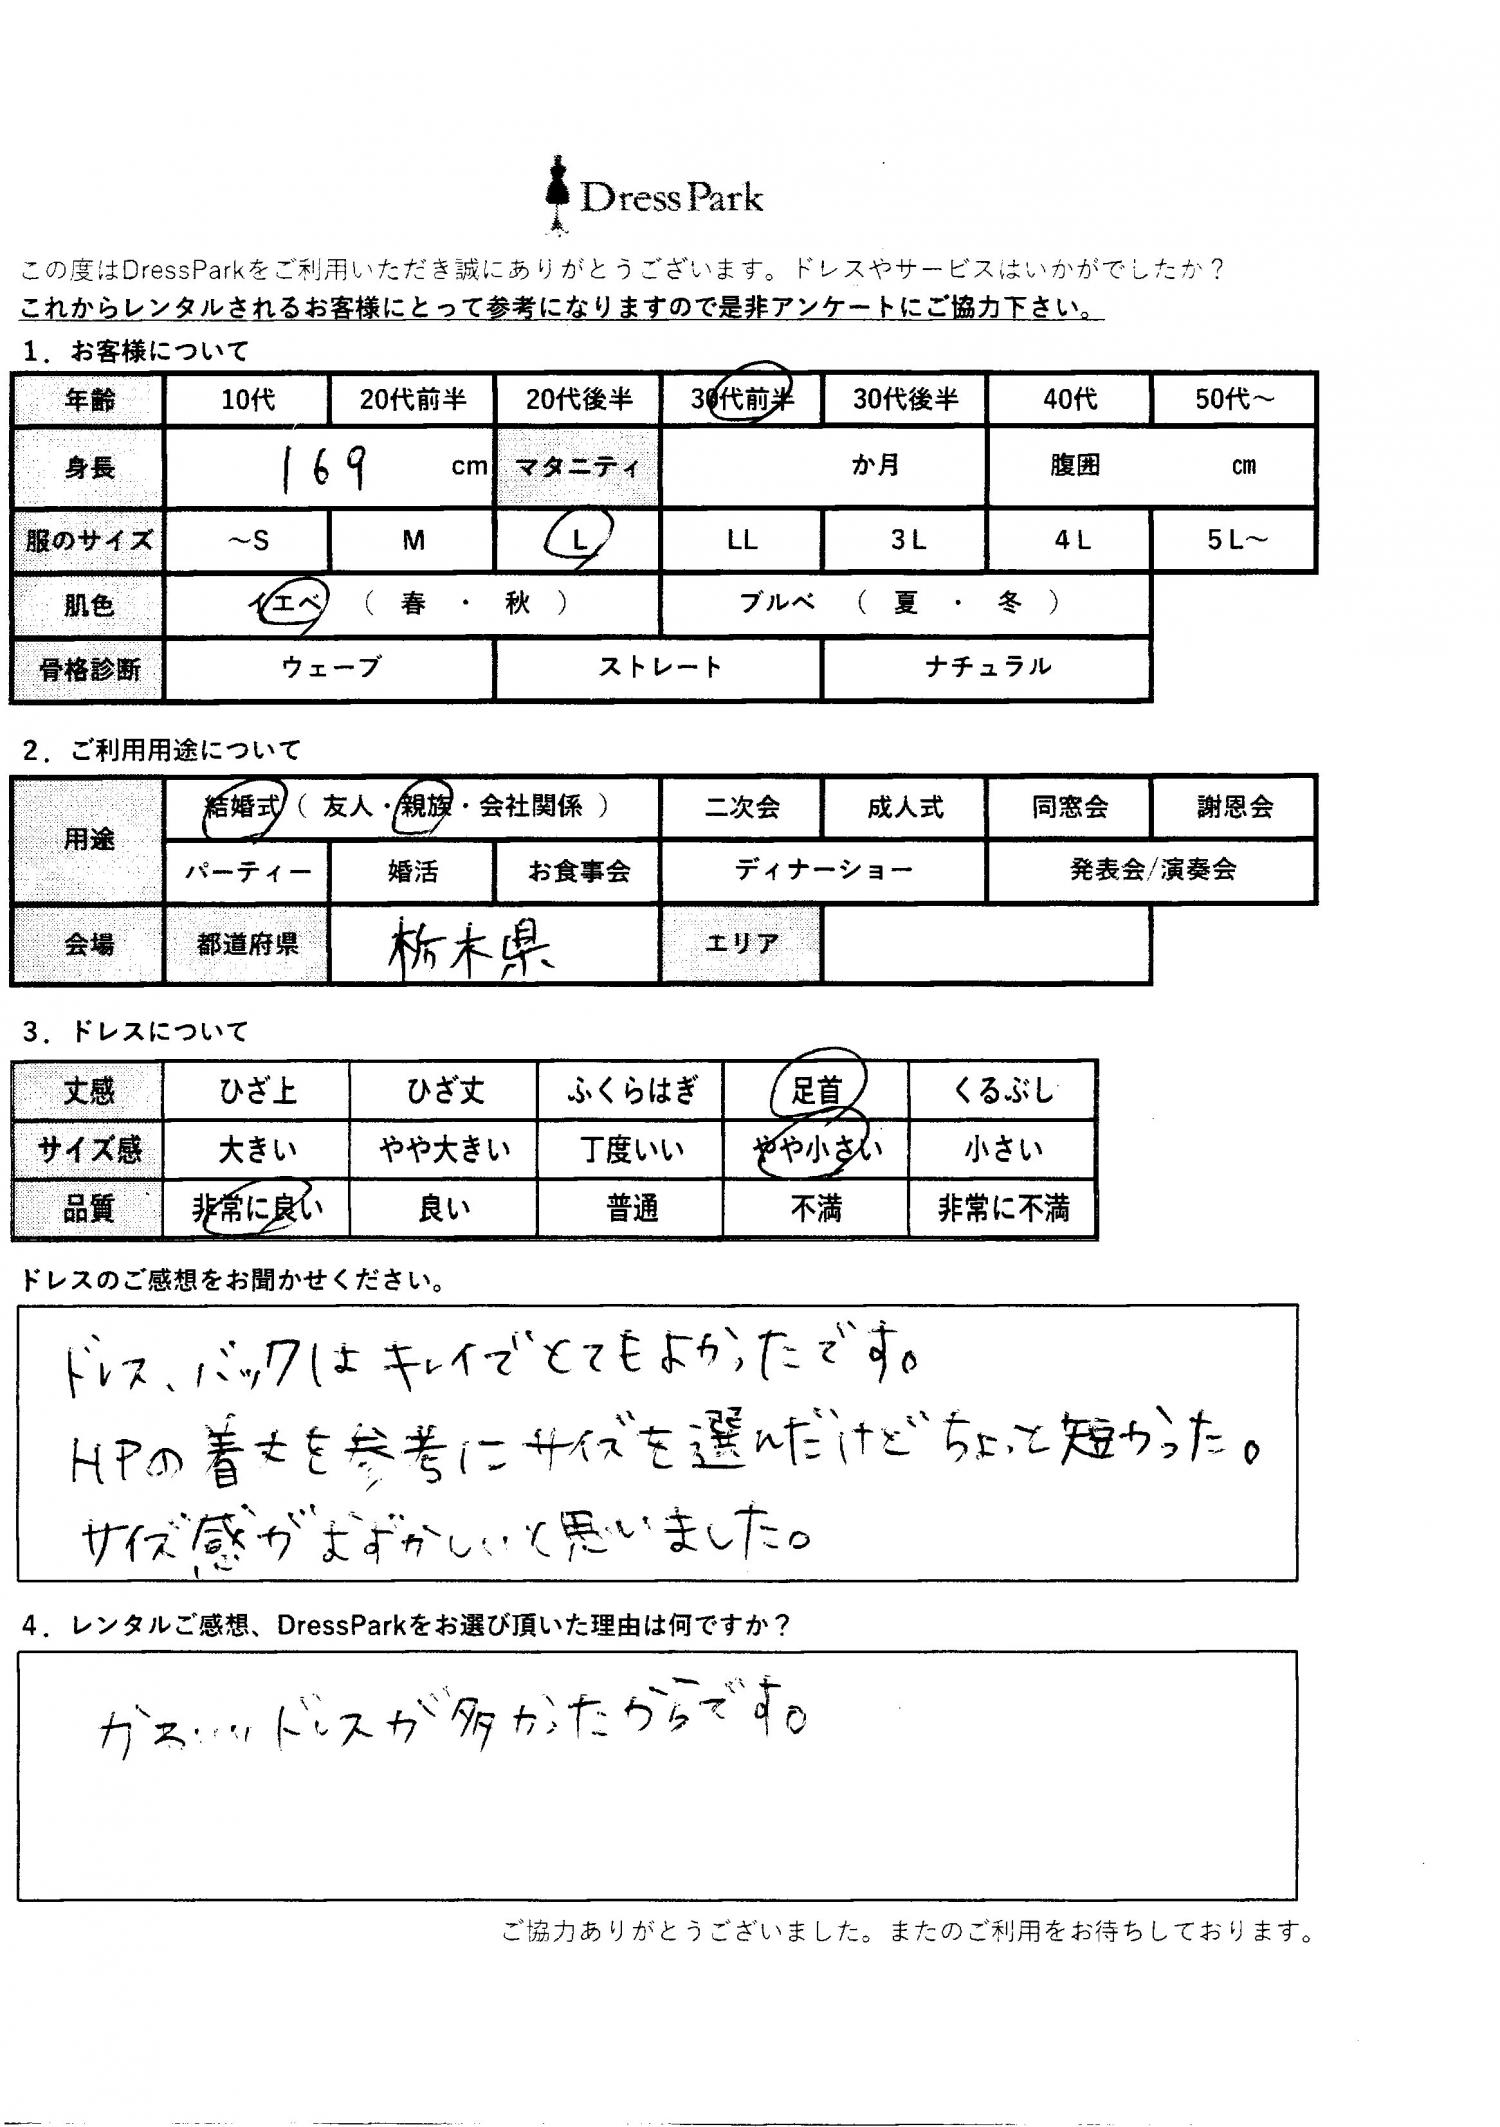 DressPark
この度はDressParkをご利用いただき誠にありがとうございます。ドレスやサービスはいかがでしたか?
これからレンタルされるお客様にとって参考になりますので是非アンケートにご協力下さい。
1. お客様について
年齢 10代 20代前半 20代後半 30代前半 30代後半 40代 50代～
身長 169 cm マタニティ か月 腹囲 cm
服のサイズ ～S M L LL 3L 4L 5L～
肌色 イエベ ( 春 ・ 秋 ) ブルベ ( 夏 ・ 冬 )
骨格診断 ウェーブ ストレート ナチュラル
2. ご利用用途について
用途 結婚式 ( 友人・親族・会社関係 ) 二次会 成人式 同窓会 謝恩会
パーティー 婚活 お食事会 ディナーショー 発表会/演奏会
会場 都道府県 栃木県 エリア
3. ドレスについて
丈感 ひざ上 ひざ丈 ふくらはぎ 足首 くるぶし
サイズ感 大きい やや大きい 丁度いい やや小さい 小さい
品質 非常に良い 良い 普通 不満 非常に不満
ドレスのご感想をお聞かせください。
ドレス、バックはキレイでとてもよかったです。
HPの着丈を参考にサイズを選んだけどちょっと短かった。
サイズ感がむずかしいと思いました。
4. レンタルご感想、DressParkをお選び頂いた理由は何ですか?
かわいいドレスが多かったからです。
ご協力ありがとうございました。またのご利用をお待ちしております。